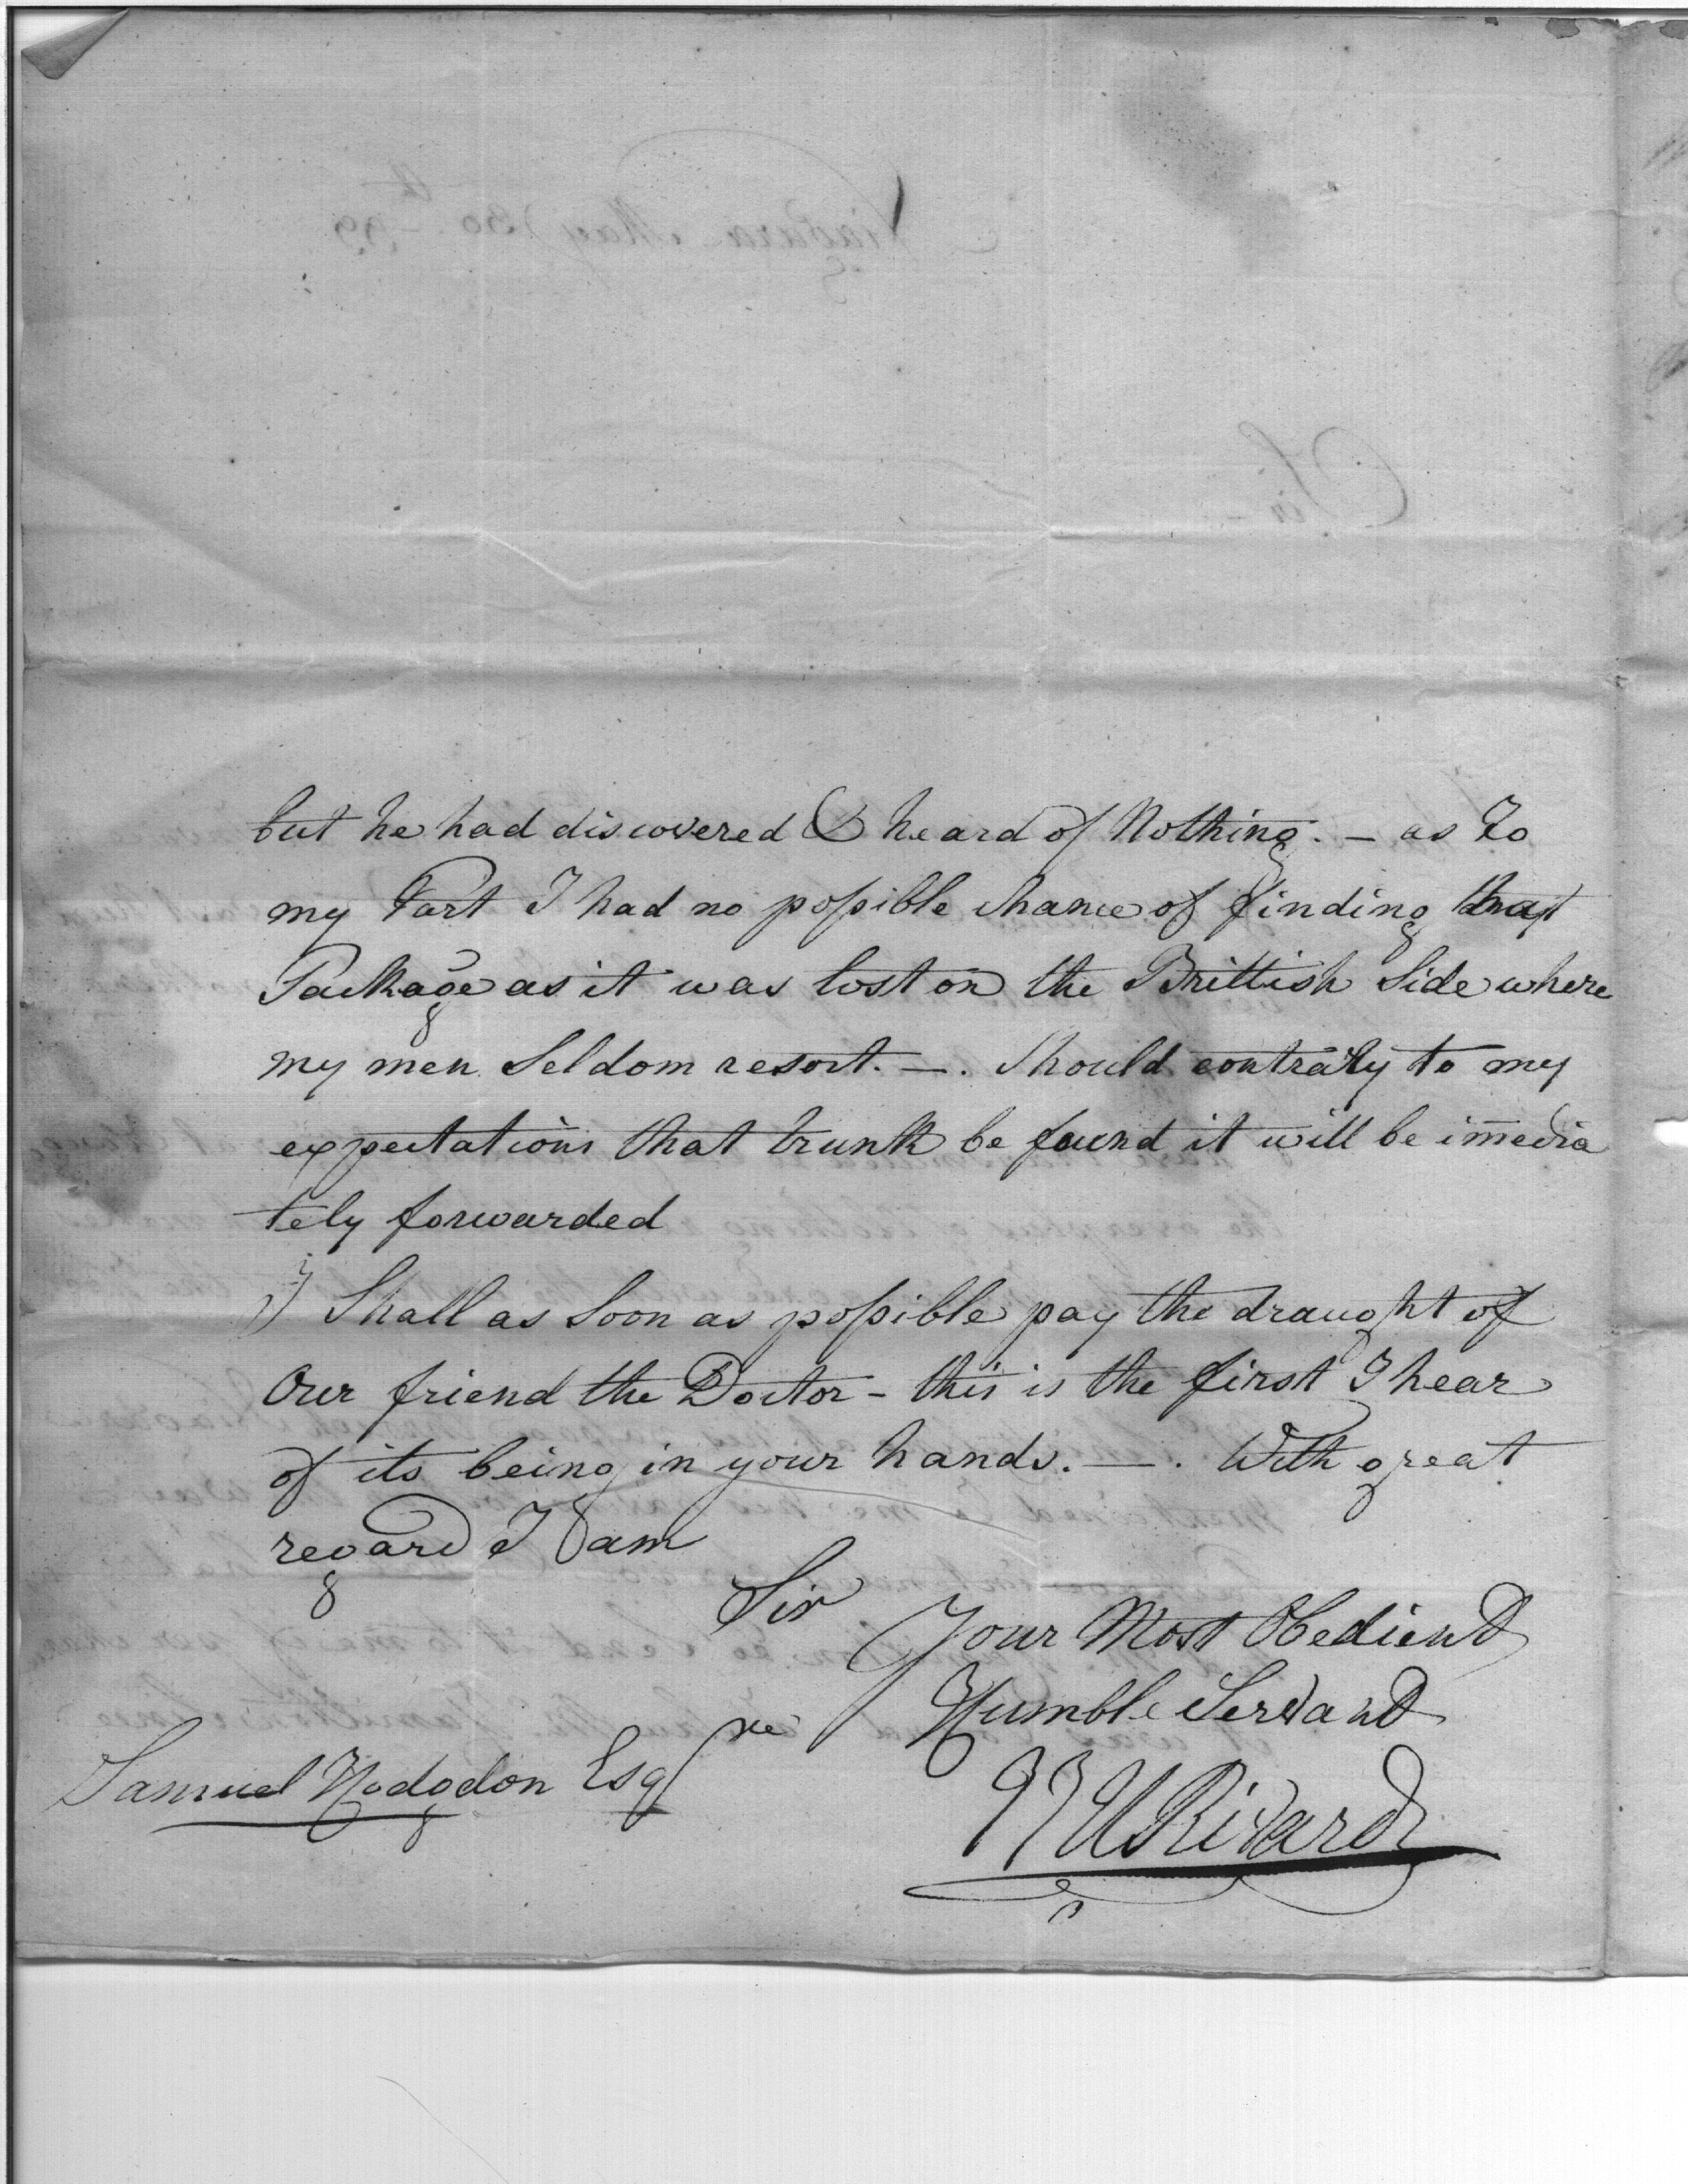 but he had discovered & heard of Nothing. — as to
my Part I had no possible chance of finding that
Package as it was lost on the Brittish Side where
my men Seldom resort. —. Should contrary to my
expectations that trunk be found it will be imedia
tely forwarded
I Shall as Soon as possible pay the draught of
Our friend the Doctor – this is the first I hear
of its being in your hands. —. With great
regard I am
Sir
Your Most Obedient
Humble Servant
Samuel Hodgdon Esqre
JJU Rivardi